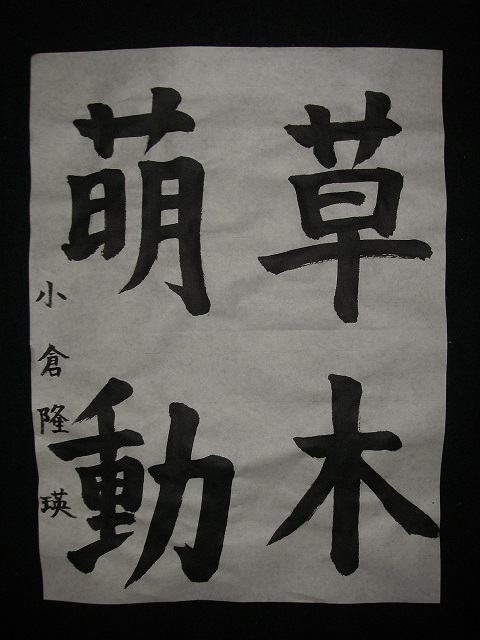 草木
萌動
小倉隆瑛